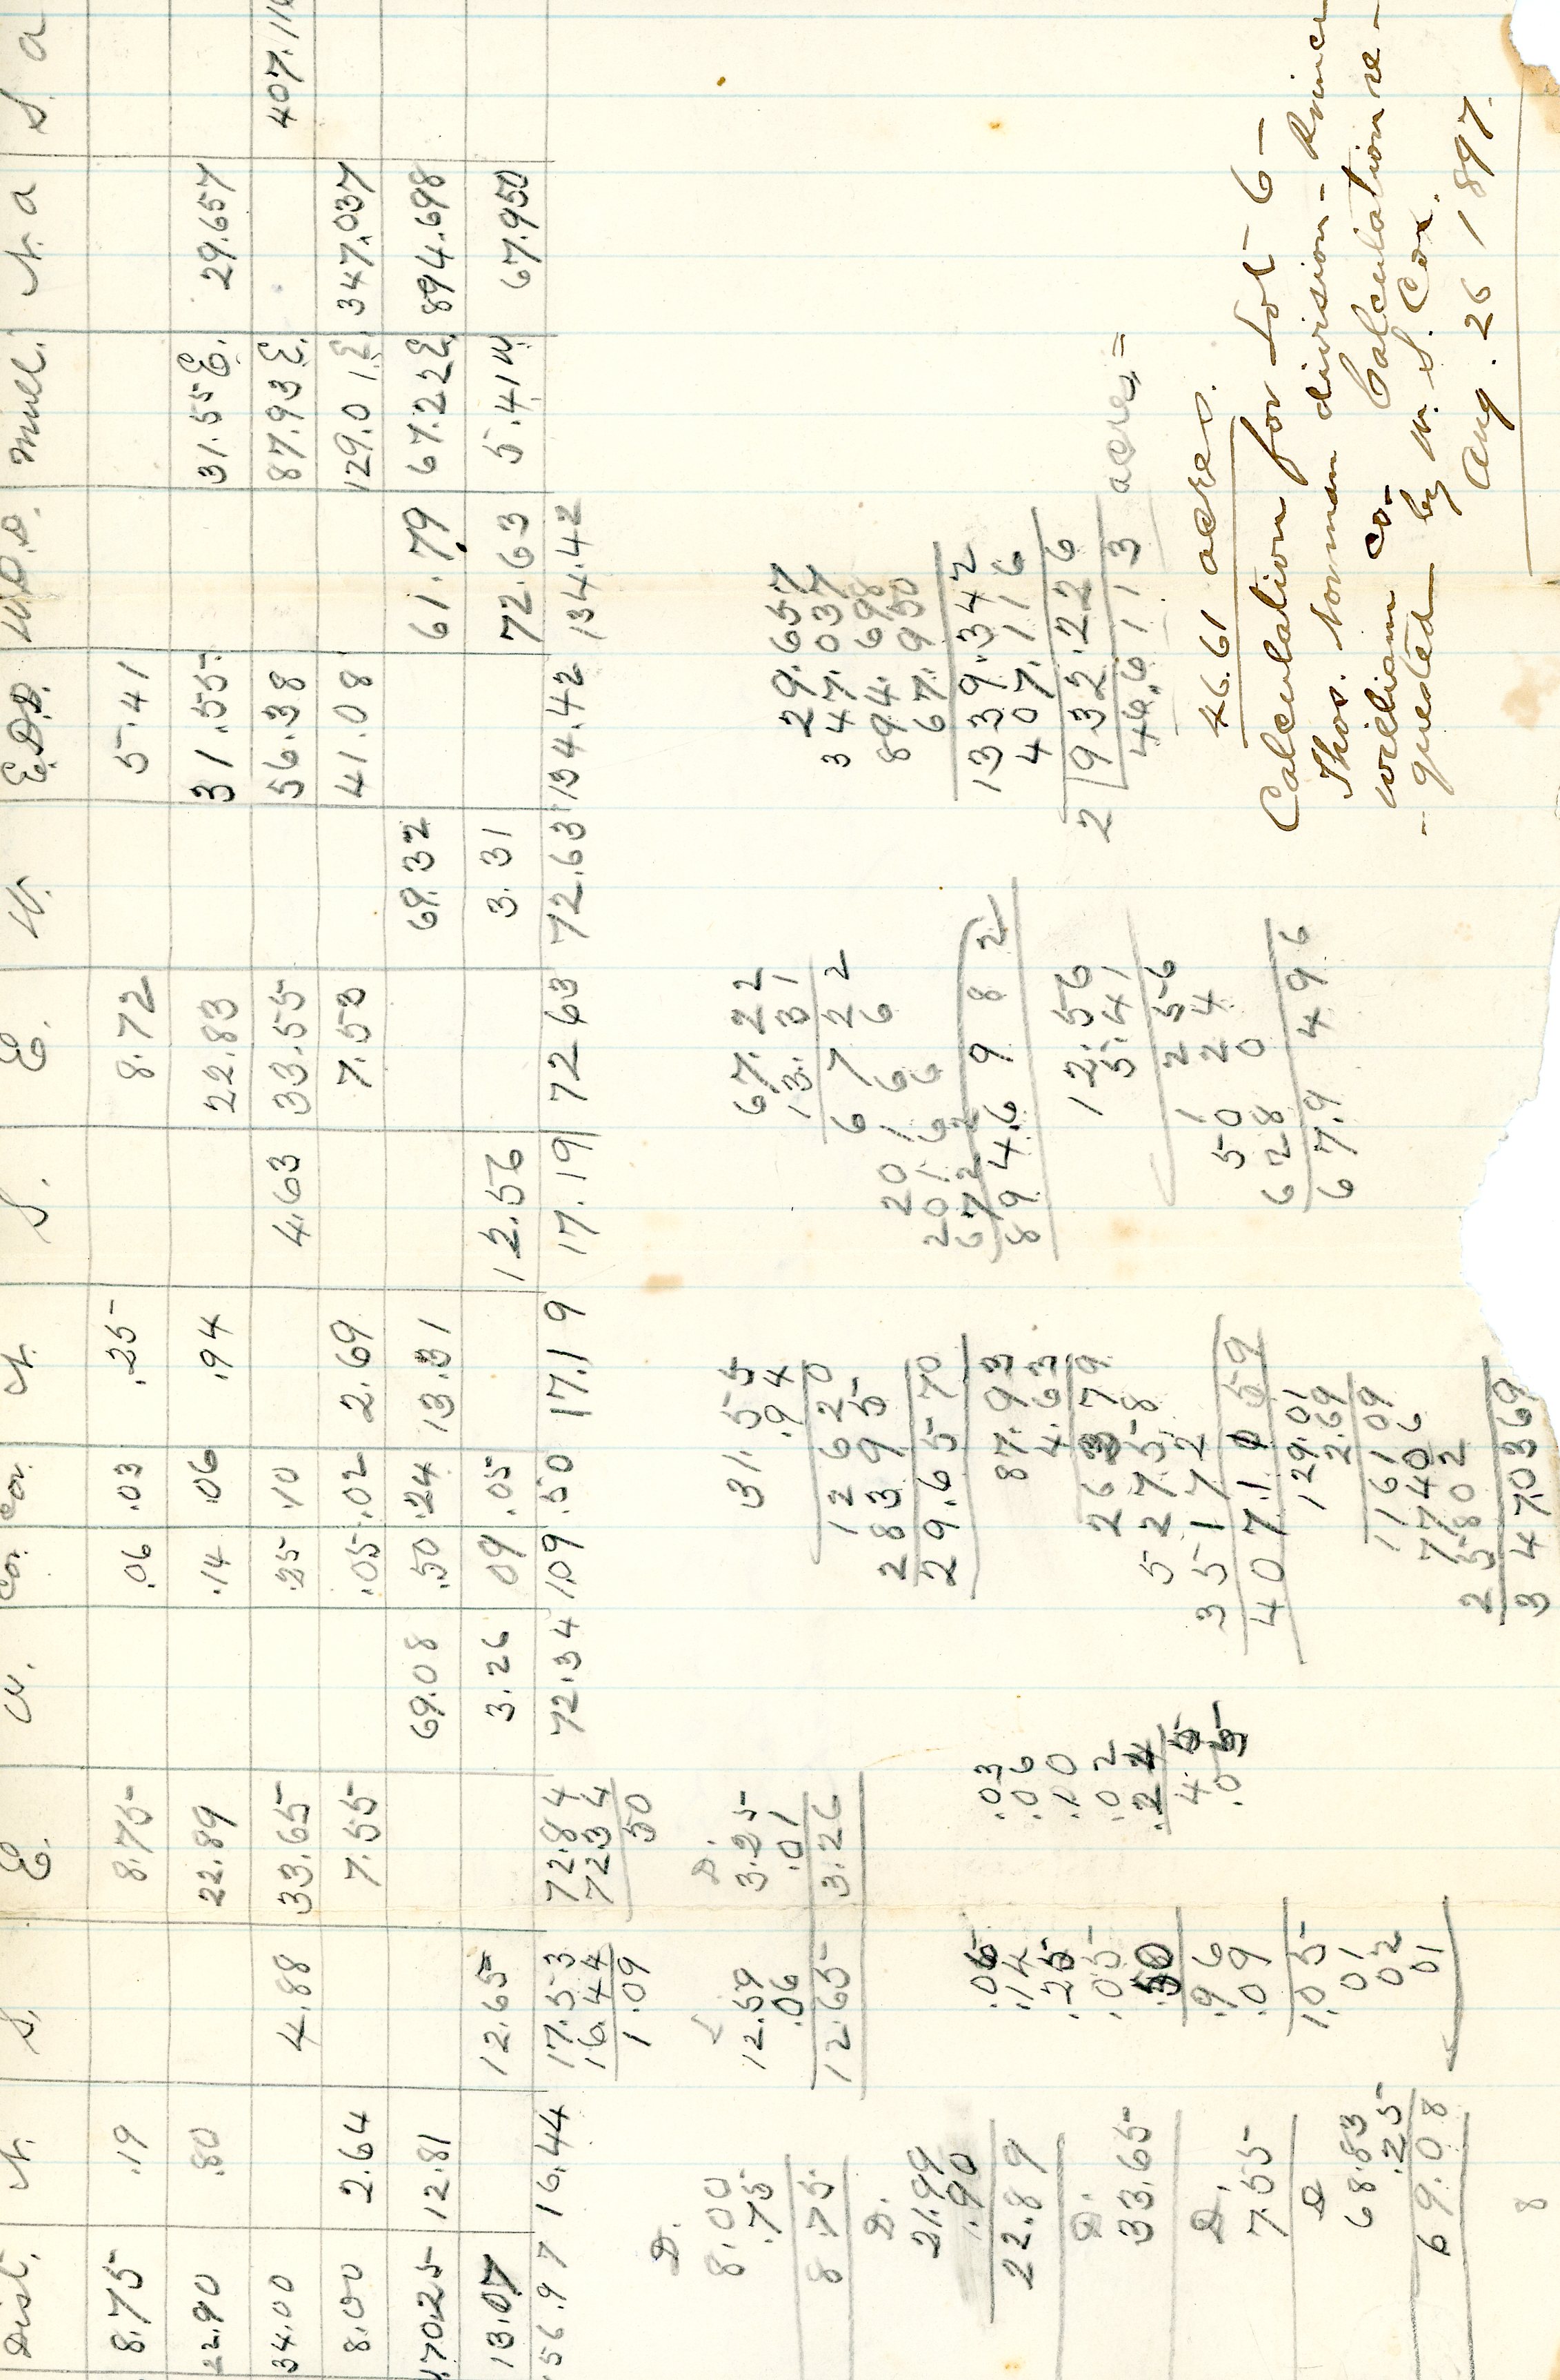 Dist. N. S. E. W. Cor. Cor. N. S. E. W. E.D.D. W.D.D. Mult. N. a S. a
8.75 .19 8.75 .06 .03 .25 8.72 5.41
22.90 .80 22.89 .14 .06 .94 22.83 31.55 31.55 E. 29.657
34.00 4.88 33.65 .25 .10 4.63 33.55 56.38 87.93 E. 407.116
8.00 2.64 7.55 .05 .02 2.69 7.53 41.08 129.01 E. 347.037
70.25 12.81 69.08 .50 .24 13.31 69.32 61.79 67.22 E. 894.698
13.07 12.65 3.26 09 .05 12.56 3.31 72.63 5.41 W 67.950
156.97 16.44 17.53 72.84 72.34 1.09 .50 17.19 17.19 72 63 72.63 134.42 134.42
16.44 72.34
1.09 50
D.
8.00
.75
8.75
D.
21.99
.90
22.89
D.
33.65
D.
7.55
D
68.83
.25
69.08
8
L
12.59
.06
12.65
D.
3.25
.01
3.26
.06
.14
.25
.05
.50
.96
.09
1.05
01
02
01
.03
.06
.10
.02
.24
45
.05
31.55
.94
12620
28395
29.6570
87.93
4.63
26379
52758
35172
407.1159
129.01
2.69
116109
77406
25802
347.0369
67.22
13.31
6722
20166
20166
6722
894.6982
12.56
5.41
1256
5024
6280
67.9496
29.657
347.037
894.698
67.950
1339.342
407.116
2 932.226
46.6113 acres=
46.61 acres.
Calculation for Lot 6 -
Thos. Norman division - Prince
William Co - Calculation re-
- quested by W. S. Cox.
Aug. 26 1897.